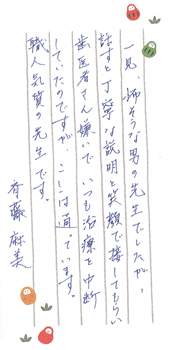 一見、怖そうな男の先生でしたが、
話すと丁寧な説明と笑顔で接してもらい
歯医者さん嫌いで いつも治療を中断
していたのですが、ここは通っています。
職人気質の先生です。
斉藤 麻美